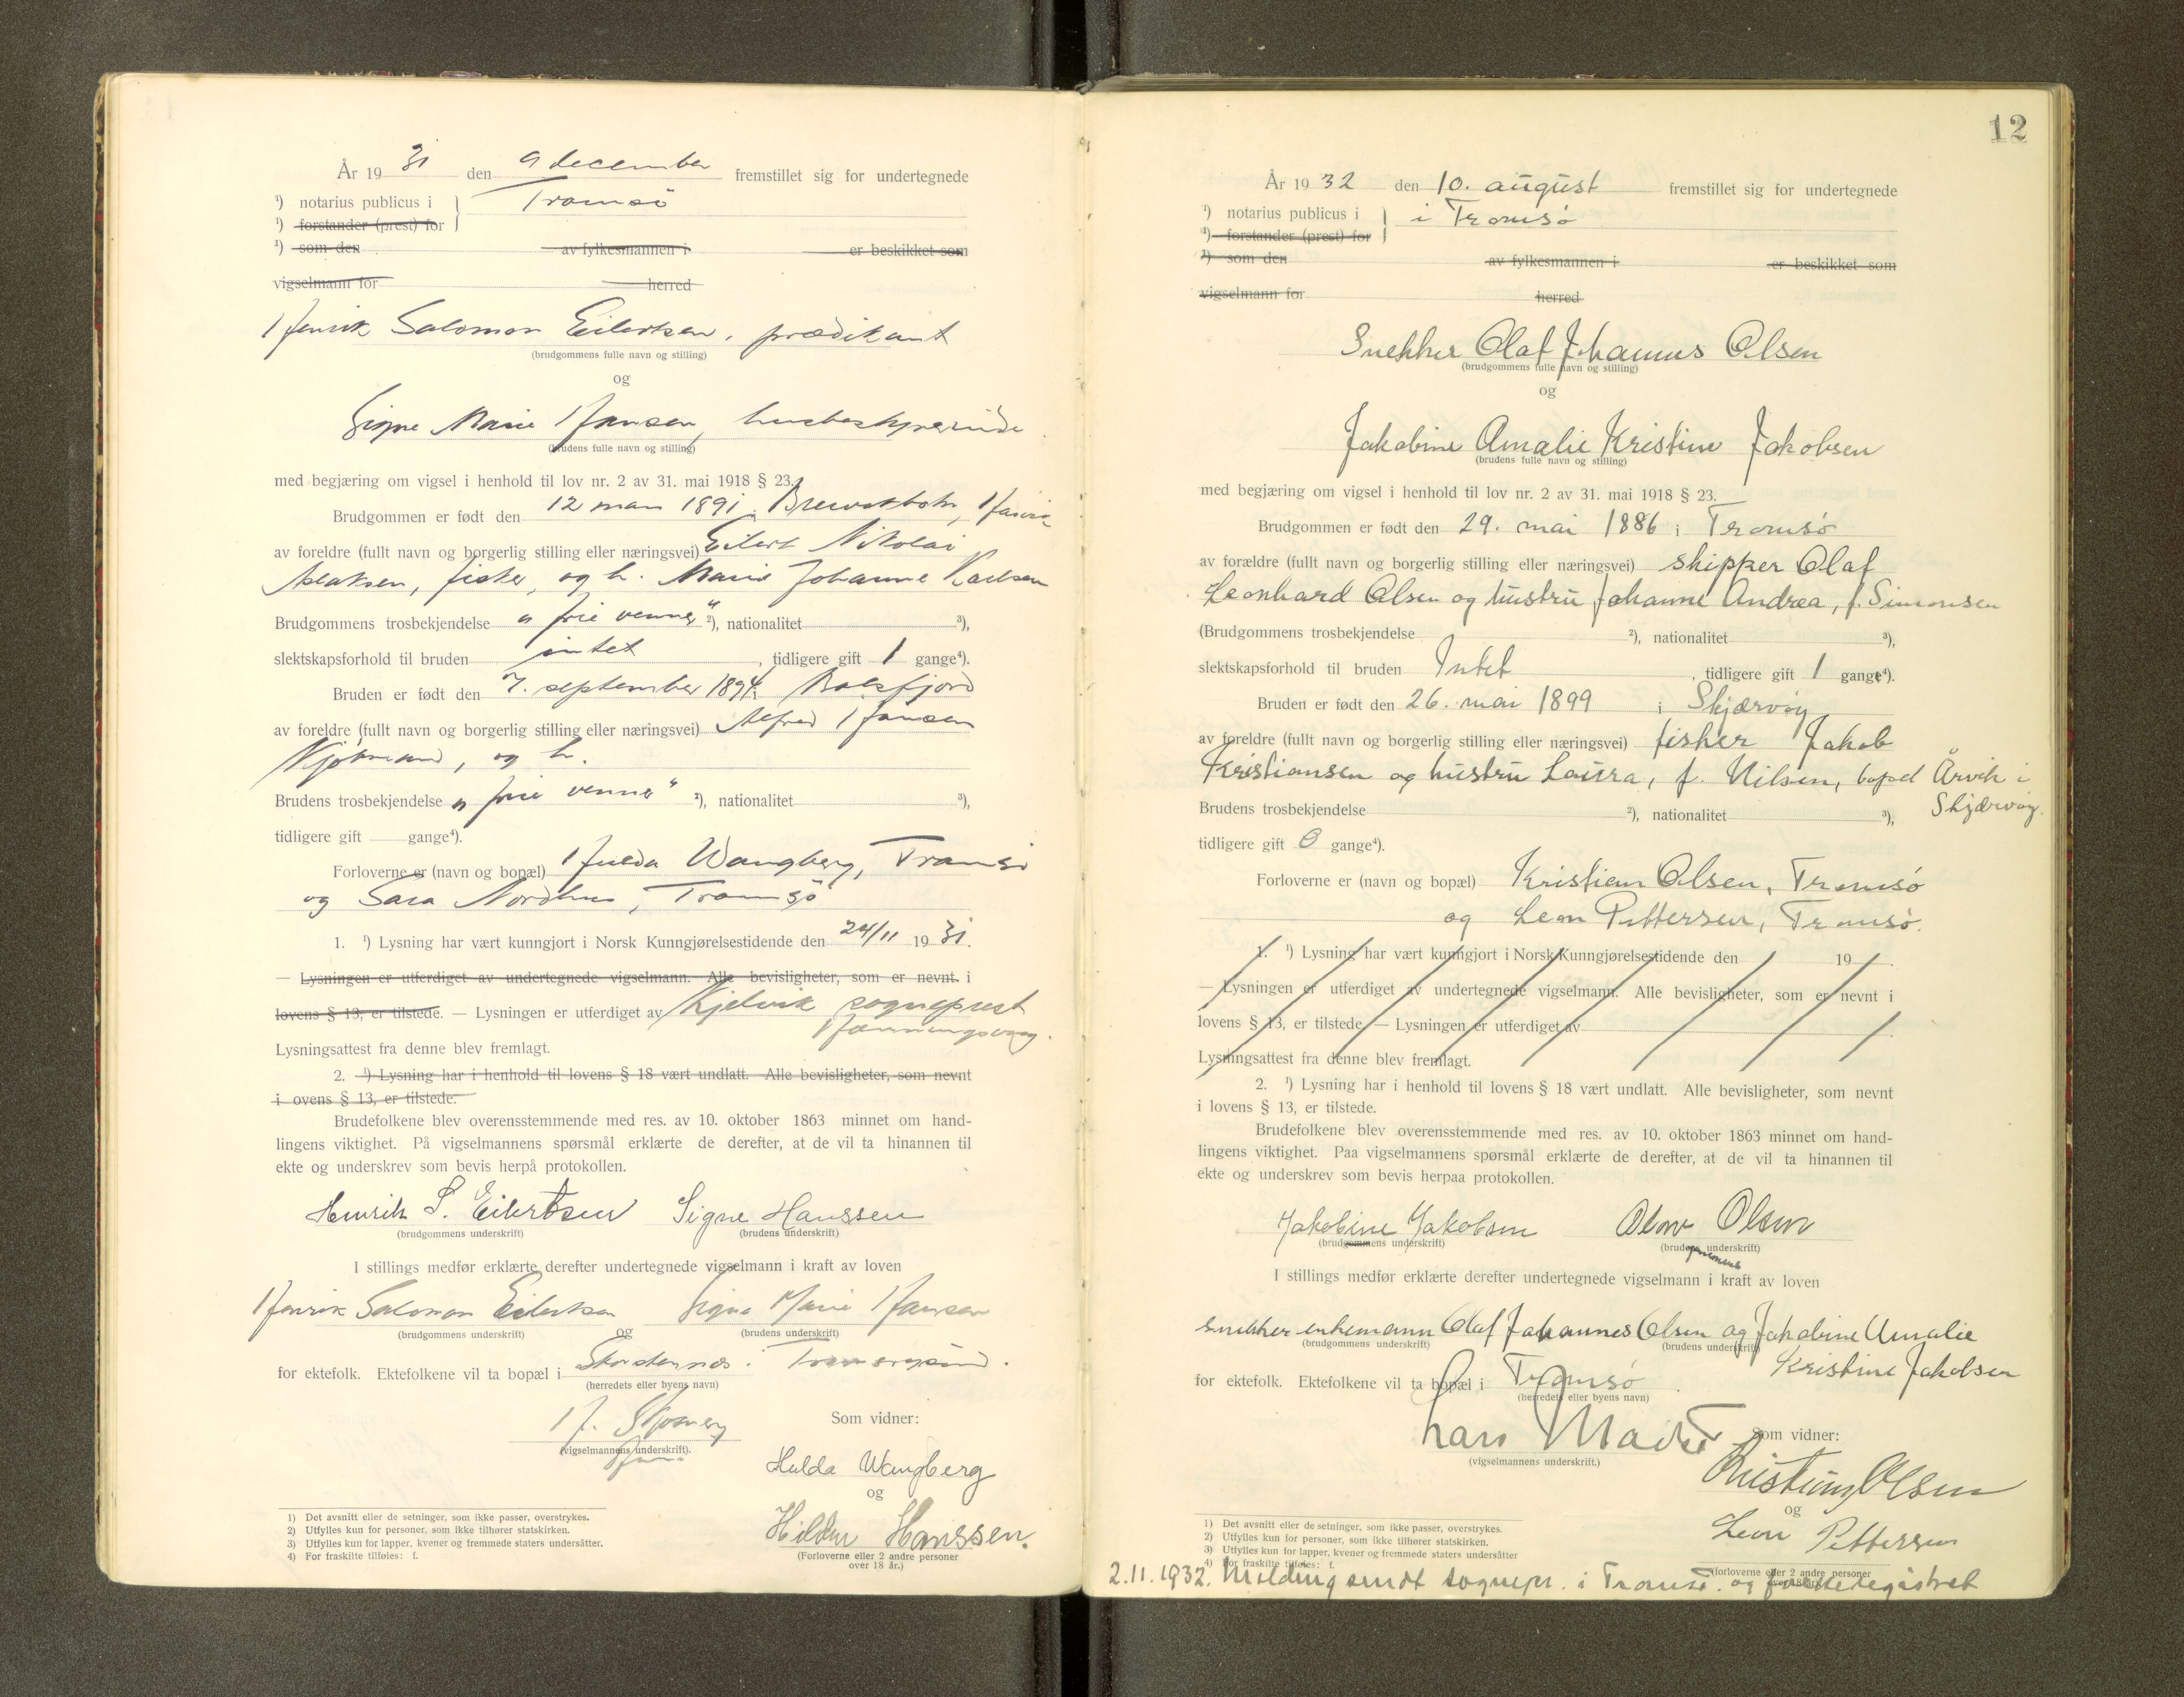 År 19 31 den 9 december fremstillet sig for undertegnede
¹) notarius publicus i } Tromsø
¹) forstander (prest) for
¹) som den av fylkesmannen i er beskikket som
vigselmann for herred
Henrik Salomon Eilertsen, prædikant
(brudgommens fulle navn og stilling)
og
Signe Marie Hansen, husbestyrerinde
(brudens fulle navn og stilling)
med begjæring om vigsel i henhold til lov nr. 2 av 31. mai 1918 § 23.
Brudgommen er født den 12 mars 1891 i
av foreldre (fullt navn og borgerlig stilling eller næringsvei) Eilert Nikolai
fisker, og h. Marie Johanne Karlsen
Brudgommens trosbekjendelse „frie venner" ²), nationalitet ³),
slektskapsforhold til bruden intet, tidligere gift 1 gange⁴).
Bruden er født den 7. september 1894 i Balsfjord
av foreldre (fullt navn og borgerlig stilling eller næringsvei) Alfred Hansen
og h.
Brudens trosbekjendelse „frie venner" ²), nationalitet ³),
tidligere gift gange⁴).
Forloverne er (navn og bopæl) Hulda Wangberg, Tromsø
og Sara Nordhus, Tromsø
1. ¹) Lysning har vært kunngjort i Norsk Kunngjørelsestidende den 24/11 19 31.
— Lysningen er utferdiget av undertegnede vigselmann. Alle bevisligheter, som er nevnt i
lovens § 13, er tilstede. — Lysningen er utferdiget av Kjelvik sogneprest
Honningsvåg.
Lysningsattest fra denne blev fremlagt.
2. ¹) Lysning har i henhold til lovens § 18 vært undlatt. Alle bevisligheter, som nevnt
i ovens § 13, er tilstede.
Brudefolkene blev overensstemmende med res. av 10. oktober 1863 minnet om hand-
lingens viktighet. På vigselmannens spørsmål erklærte de derefter, at de vil ta hinannen til
ekte og underskrev som bevis herpå protokollen.
Henrik S. Eilertsen Signe Hanssen
(brudgommens underskrift) (brudens underskrift)
I stillings medfør erklærte derefter undertegnede vigselmann i kraft av loven
Henrik Salomon Eilertsen og Signe Marie Hansen
(brudgommens underskrift) (brudens underskrift)
for ektefolk. Ektefolkene vil ta bopæl i Storstennes i Tromsøysund.
(herredets eller byens navn)
(vigselmannens underskrift).
Som vidner:
Hulda Wangberg
og
Hildur Hanssen.
(Forloverne eller 2 andre personer
over 18 år.)
1) Det avsnitt eller de setninger, som ikke passer, overstrykes.
2) Utfylles kun for personer, som ikke tilhører statskirken.
3) Utfylles kun for lapper, kvener og fremmede staters undersåtter.
4) For fraskilte tilføies: f.
12
År 19 32 den 10. august fremstillet sig for undertegnede
¹) notarius publicus i } i Tromsø
¹) forstander (prest) for
¹) som den av fylkesmannen i er beskikket som
vigselmann for herred
Snekker Olaf Johannes Olsen
(brudgommens fulle navn og stilling)
og
Jakobine Amalie Kristine Jakobsen
(brudens fulle navn og stilling)
med begjæring om vigsel i henhold til lov nr. 2 av 31. mai 1918 § 23.
Brudgommen er født den 29. mai 1886 i Tromsø
av forældre (fullt navn og borgerlig stilling eller næringsvei) skipper Olaf
Leonhard Olsen og hustru Johanne Andrea, f. Simonsen
(Brudgommens trosbekjendelse ²), nationalitet ³),
slektskapsforhold til bruden Intet, tidligere gift 1 gange⁴).
Bruden er født den 26. mai 1899 i Skjærvøy
av foreldre (fullt navn og borgerlig stilling eller næringsvei) fisker Jakob
Kristiansen og hustru Laura, f. Nilsen, bopæl Årvik i
Skjærvøy.
Brudens trosbekjendelse ²), nationalitet ³),
tidligere gift 0 gange⁴).
Forloverne er (navn og bopæl) Kristian Olsen, Tromsø
og Leon Pettersen, Tromsø.
1. ¹) Lysning har vært kunngjort i Norsk Kunngjørelsestidende den 19 .
— Lysningen er utferdiget av undertegnede vigselmann. Alle bevisligheter, som er nevnt i
lovens § 13, er tilstede — Lysningen er utferdiget av .
Lysningsattest fra denne blev fremlagt.
2. ¹) Lysning har i henhold til lovens § 18 vært undlatt. Alle bevisligheter, som nevnt
i lovens § 13, er tilstede.
Brudefolkene blev overensstemmende med res. av 10. oktober 1863 minnet om hand-
lingens viktighet. Paa vigselmannens spørsmål erklærte de derefter, at de vil ta hinannen til
ekte og underskrev som bevis herpaa protokollen.
Jakobine Jakobsen Olav Olsen
(brudgommens underskrift) (brudgommens underskrift)
I stillings medfør erklærte derefter undertegnede vigselmann i kraft av loven
snekker enkemann Olaf Johannes Olsen og Jakobine Amalie
(brudgommens underskrift) (brudens underskrift)
Kristine Jakobsen
for ektefolk. Ektefolkene vil ta bopæl i Tromsø.
(herredets eller byens navn)
Lars
(vigselmannens underskrift.)
Som vidner:
Kristian Olsen
og
Leon Pettersen
(forloverne eller 2 andre personer
1) Det avsnitt eller de setninger, som ikke passer, overstrykes.
2) Utfylles kun for personer, som ikke tilhører statskirken.
3) Utfylles kun for lapper, kvener og fremmede staters undersåtter
4) For fraskilte tilføies: f.
2.11.1932. Melding sendt sognepr. i Tromsø. og